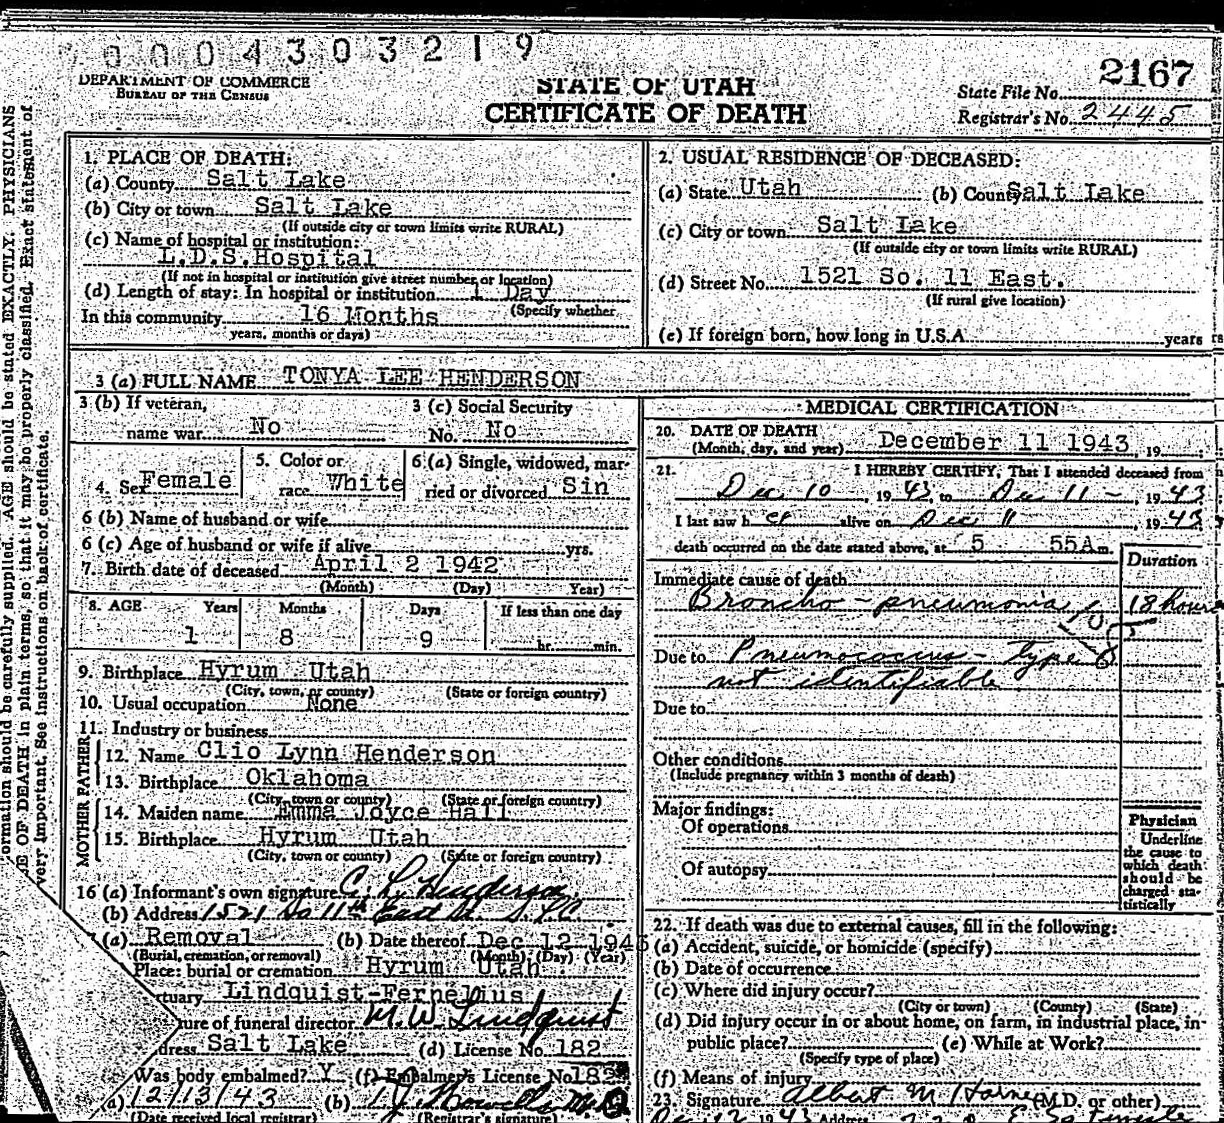 0004303219
DEPARTMENT OF COMMERCE
BUREAU OF THE CENSUS
STATE OF UTAH
CERTIFICATE OF DEATH
2167
State File No.
Registrar's No. 2445
1. PLACE OF DEATH:
(a) County Salt Lake
(b) City or town Salt Lake
(If outside city or town limits write RURAL)
(c) Name of hospital or institution:
L.D.S.Hospital
(If not in hospital or institution give street number or location)
(d) Length of stay: In hospital or institution 1 Day
(Specify whether
In this community 16 Months
years, months or days)
2. USUAL RESIDENCE OF DECEASED:
(a) State Utah (b) County Salt Lake
(c) City or town Salt Lake
(If outside city or town limits write RURAL)
(d) Street No. 1521 So. 11 East.
(If rural give location)
(e) If foreign born, how long in U.S.A. years
3 (a) FULL NAME TONYA LEE HENDERSON
3 (b) If veteran,
name war No
3 (c) Social Security
No. No
4. Sex Female
5. Color or
race White
6 (a) Single, widowed, mar-
ried or divorced Sin
6 (b) Name of husband or wife
6 (c) Age of husband or wife if alive yrs.
7. Birth date of deceased April 2 1942
(Month) (Day) Year)
8. AGE Years Months Days If less than one day
1 8 9 hr. min.
9. Birthplace Hyrum Utah
(City, town, or county) (State or foreign country)
10. Usual occupation None
11. Industry or business
FATHER
12. Name Clio Lynn Henderson
13. Birthplace Oklahoma
(City, town or county) (State or foreign country)
MOTHER
14. Maiden name Emma Joyce Hall
15. Birthplace Hyrum Utah
(City, town or county) (State or foreign country)
16 (a) Informant's own signature C. L. Henderson
(b) Address 1521 So 11th East St. S.L.C.
(a) Removal (b) Date thereof Dec 12 1943
(Burial, cremation, or removal) (Month) (Day) (Year)
Place: burial or cremation Hyrum Utah
rtuary Lindquist-Fernelius
ure of funeral director M.W. Lindquist
dress Salt Lake (d) License No. 182
Was body embalmed? Y (f) Embalmer's License No 182
a) 12/13/43 (b)
(Date received local registrar) (Registrar's signature)
MEDICAL CERTIFICATION
20. DATE OF DEATH
(Month, day, and year) December 11 1943, 19
21. I HEREBY CERTIFY, That I attended deceased from
Dec 10, 1943, to Dec 11, 1943
I last saw h er alive on Dec 11, 1943
death occurred on the date stated above, at 5 55A m.
Duration
Immediate cause of death
Broncho-pneumonia 18 hours
Due to Pneumococcus - Type
not identifiable
Due to
Other conditions
(Include pregnancy within 3 months of death)
Major findings:
Of operations
Of autopsy
Physician
Underline
the cause to
which death
should be
charged sta-
tistically
22. If death was due to external causes, fill in the following:
(a) Accident, suicide, or homicide (specify)
(b) Date of occurrence
(c) Where did injury occur?
(City or town) (County) (State)
(d) Did injury occur in or about home, on farm, in industrial place, in
public place? (e) While at Work?
(Specify type of place)
(f) Means of injury
23. Signature Albert M. Horne (M.D. or other)
1943 Address
ormation should be carefully supplied. AGE should be stated EXACTLY. PHYSICIANS
E OF DEATH in plain terms, so that it may be properly classified. Exact statement of
very important. See instructions on back of certificate.